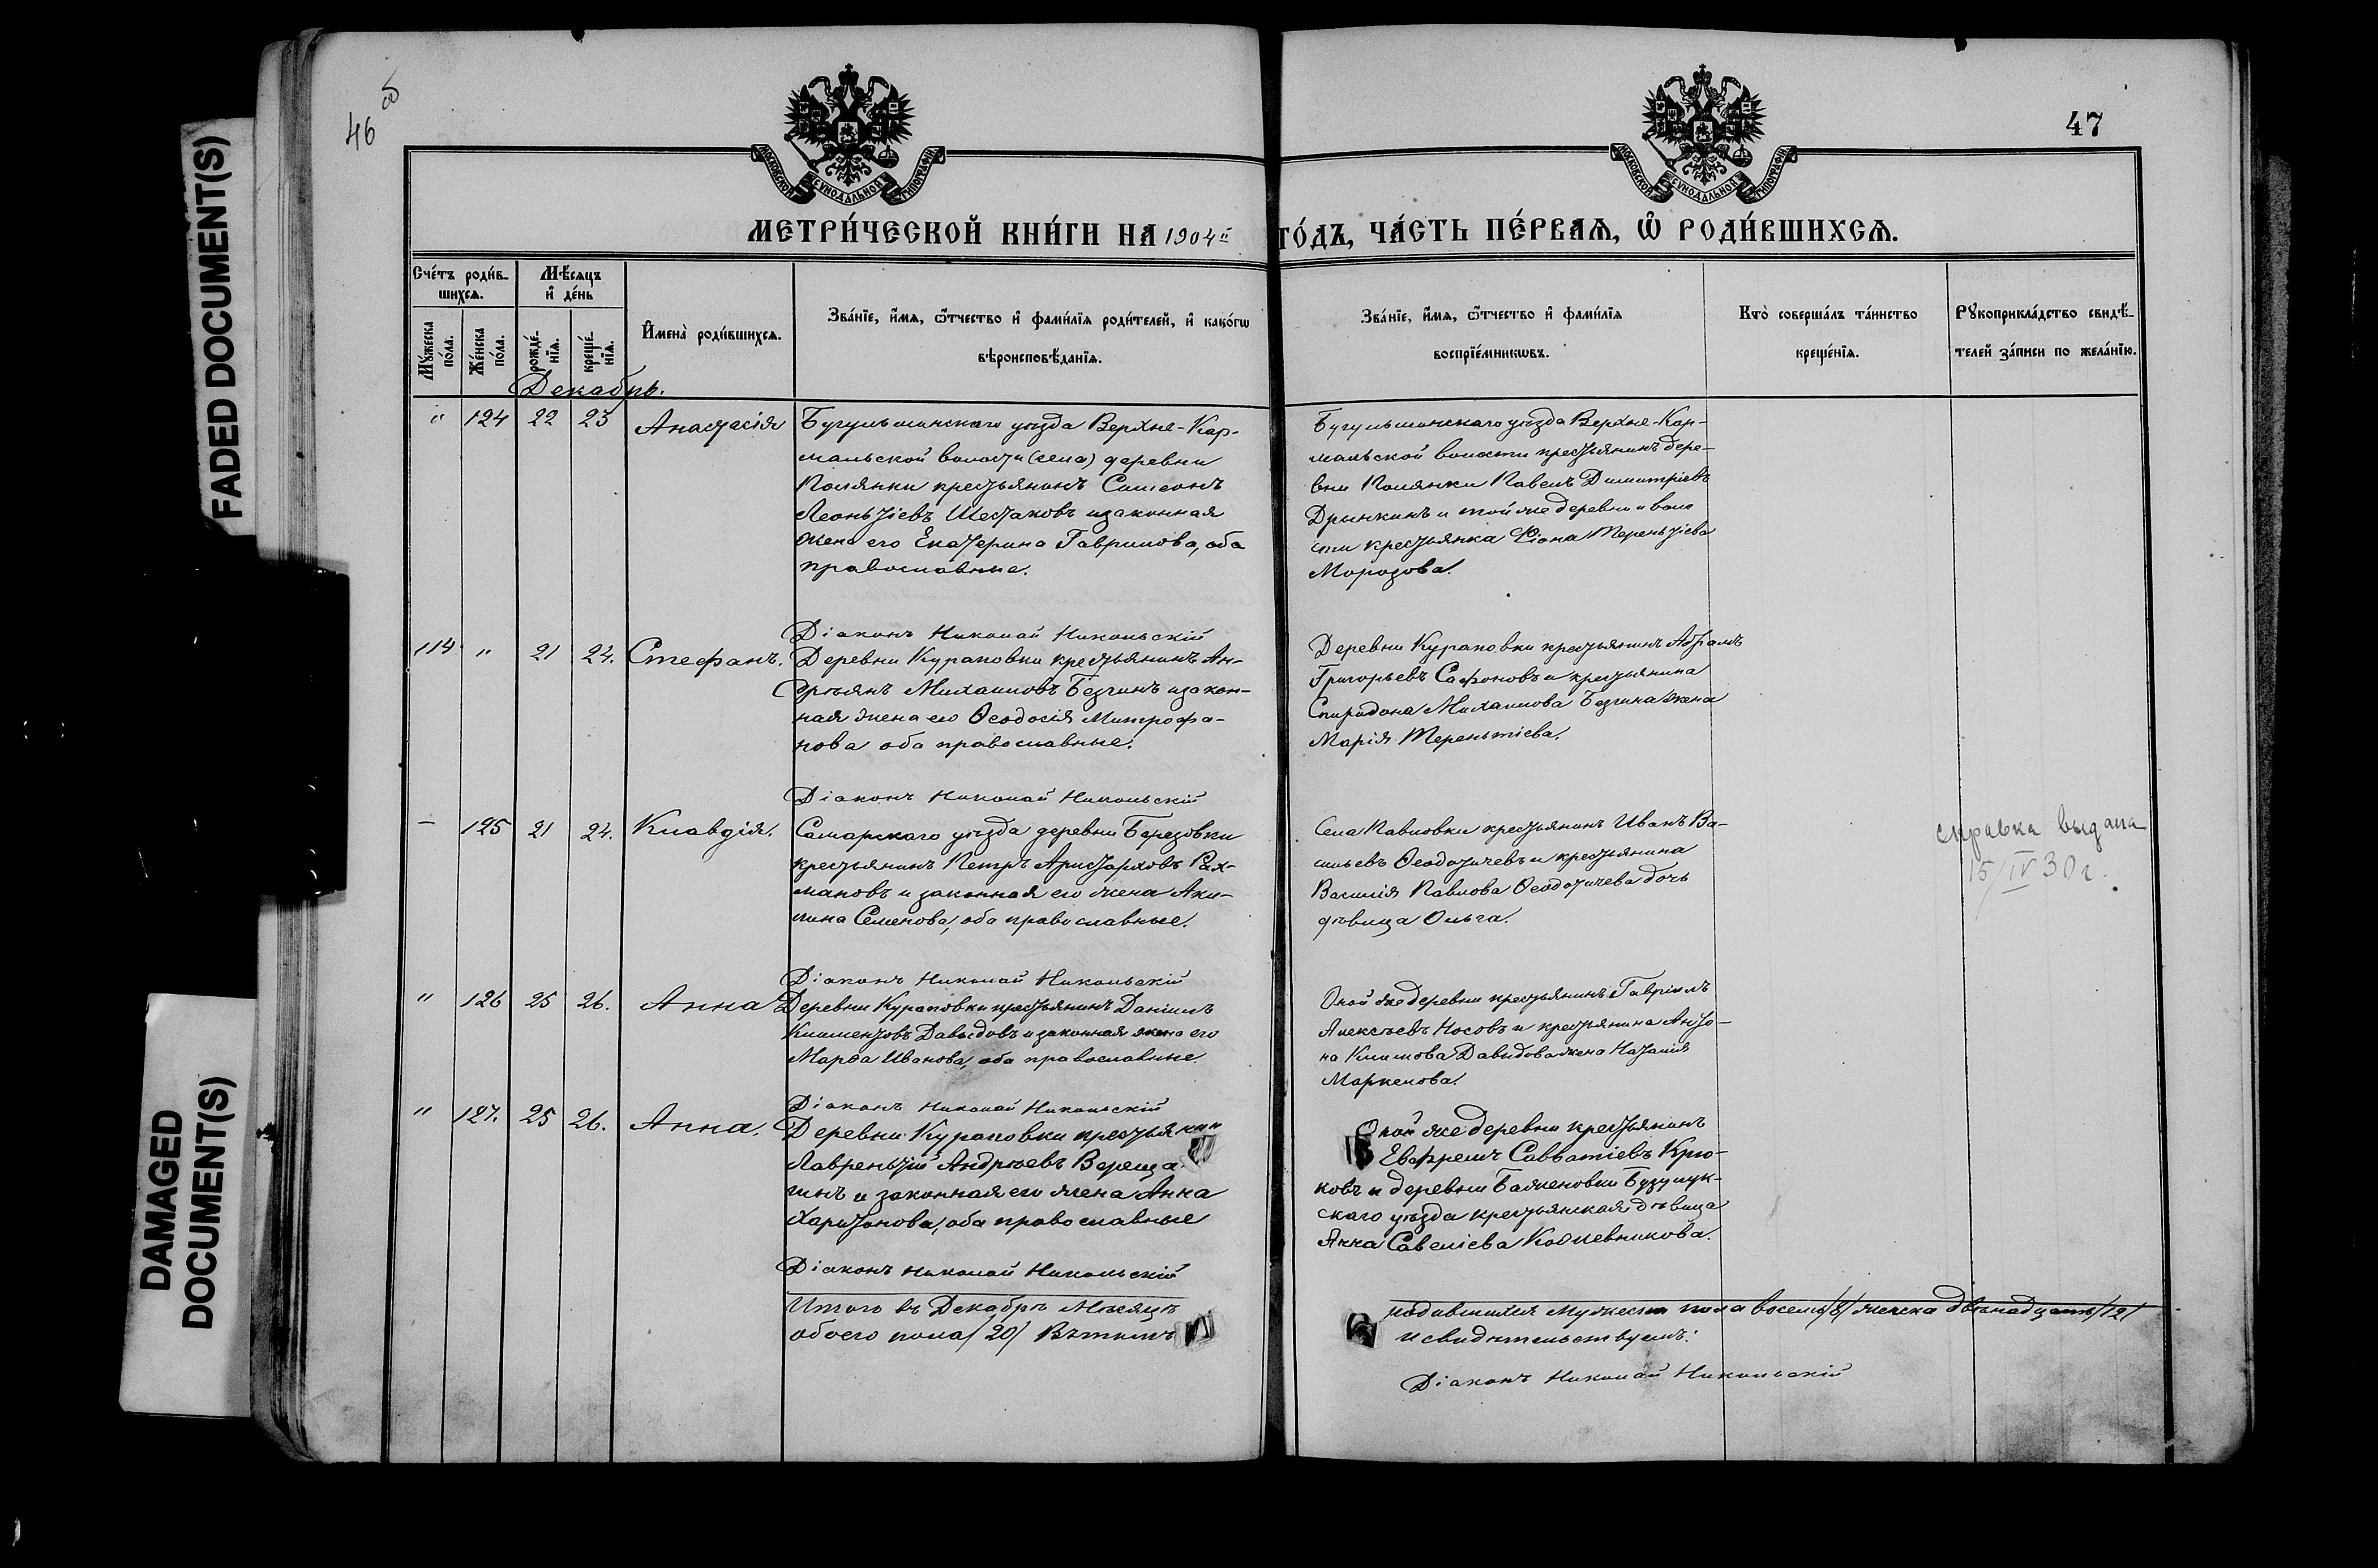 46 об
47
МОСКОВСКОЙ СѴНОДАЛЬНОЙ ТИПОГРАФІИ
МОСКОВСКОЙ СѴНОДАЛЬНОЙ ТИПОГРАФІИ
МЕТРИ́ЧЕСКОЙ КНИ́ГИ НА 1904 й ГО́ДЪ, ЧА́СТЬ ПЕ́РВАѦ, Ѽ РОДИ́ВШИХСѦ.
Сче́тъ роди́в-
шихсѧ.
Мꙋ́жеска
по́ла.
Же́нска
по́ла.
Мѣ́сѧцъ
и҆ де́нь
рожде́-
нїѧ.
креще́-
нїѧ.
И҆мена̀ роди́вшихсѧ.
Зва́нїе, и҆́мѧ, ѻ҆́тчество и҆ фами́лїѧ роди́телей, и҆ како́гѡ
вѣроисповѣ́данїѧ.
Зва́нїе, и҆́мѧ, ѻ҆́тчество и҆ фами́лїѧ
воспрїе́мникѡвъ.
Кто̀ соверша́лъ та́инство
креще́нїѧ.
Рꙋкоприкла́дство свидѣ́-
телей за́писи по жела́нїю.
Декабрь.
" 124 22 23 Анастасія
Бугульминскаго уѣзда Верхне-Кар-
мальской волости (села) деревни
Полянки крестьянинъ Симеонъ
Леонтіевъ Шестаковъ и законная
жена его Екатерина Гаврилова, оба
православные.
Бугульминскаго уѣзда Верхне-Кар-
мальской волости крестьянинъ дере-
вни Полянки Павелъ Димитріевъ
Дрынкинъ и той же деревни и воло
сти крестьянка Ѳіона Терентіева
Морозова.
Діаконъ Николай Никольскій
114 " 21 24. Стефанъ.
Деревни Кураповки крестьянинъ Ан-
дреянъ Михаиловъ Безгинъ и закон-
ная жена его Ѳеодосія Митрофа-
нова оба православные.
Деревни Кураповки крестьянинъ Абрамъ
Григорьевъ Сафоновъ и крестьянина
Спиридона Михаилова Безгина жена
Марія Терентіева.
Діаконъ Николай Никольскій
– 125 21 24. Клавдія.
Самарскаго уѣзда деревни Березовки
крестьянинъ Петръ Аристарховъ Рах-
мановъ и законная его жена Аку-
лина Семенова, оба православные.
Села Павловки крестьянинъ Иванъ Ва-
сильевъ Ѳеодотичевъ и крестьянина
Василія Павлова Ѳеодотичева дочь
дѣвица Ольга.
справка выдана
15/IV 30 г.
Діаконъ Николай Никольскій
" 126 25 26. Анна
Деревни Кураповки крестьянинъ Даніилъ
Климентовъ Давыдовъ и законная жена его
Марѳа Иванова, оба православные
Оной же деревни крестьянинъ Гавріилъ
Алексѣевъ Носовъ и крестьянина Анто-
на Климова Давыдова жена Наталія
Маркелова.
Діаконъ Николай Никольскій
" 127. 25 26. Анна.
Деревни Кураповки крестьянин
Лаврентій Андреевъ Вереща
гинъ и законная его жена Анна
Харитонова, оба православные
Оной же деревни крестьянинъ
Евфремъ Савватіевъ Крю-
ковъ и деревни Баженовки Бузулук-
скаго уѣзда крестьянская дѣвица
Анна Савеліева Кобневникова.
Діаконъ Николай Никольскій
Итого въ Декабрѣ Мѣсяцѣ
обоего пола /20/ Въ томъ
родившихся мужеска пола восемь /8/ женска двѣнадцать /12/
И свидѣтельствуемъ:
Діаконъ Николай Никольскій
FADED DOCUMENT(S)
DAMAGED
DOCUMENT(S)